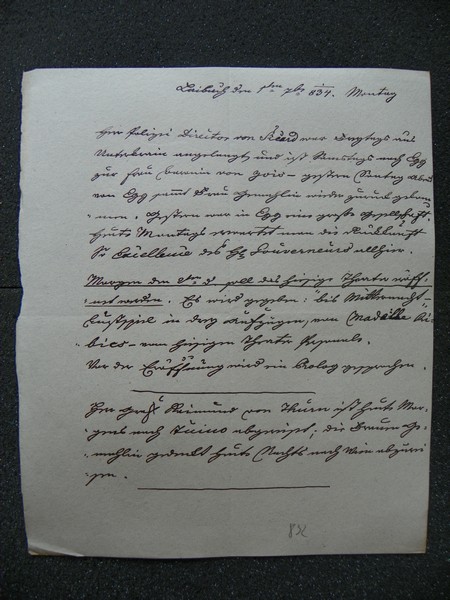 Laibach den 1ten 7br 1834. Montag
Herr Polizei Director von Sicard war Freytags aus
Unterkrain angelangt und ist Samstags nach Egg
zur Frau Baronin von Zois – gestern Sontag Abend
von Egg sammt Frau Gemahlin wieder zurück gekom-
men. Gestern war in Egg eine große Gesellschaft.
Heute Montags erwartet man die Rückkunft
Sr Excellenz des H. Gouverneurs allhier.
Morgen den 2ten d soll das hiesige Theater eröff-
net werden. Es wird gegeben: "bis Mitternacht –
Lustspiel in drey Aufzügen, von
– vom hiesigen Theater Personale.
Vor der Eröffnung wird ein Prolog gesprochen.
Herr Graf Raimund von Thurn ist heute Mor-
gens nach abgereist; die Frauen Ge-
mahlin gedenkt heute Nachts nach Wien abzurei-
sen.